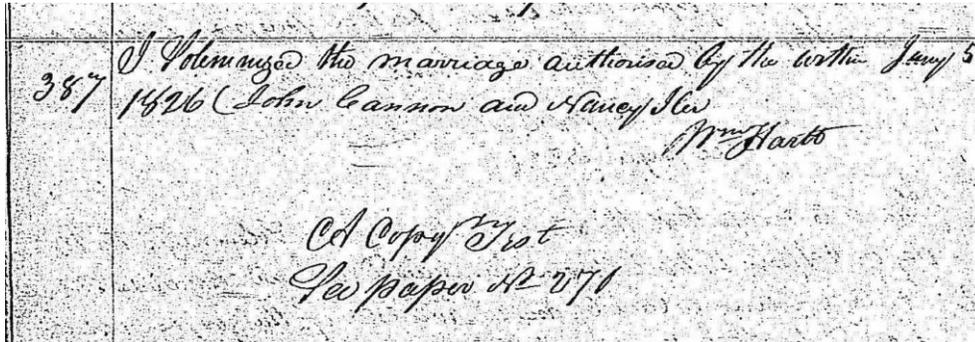 387 I Solemnized the marriage authorised by the within Jany 5
1826 (John Cannon and Nancy Iler
Wm Harts
A Copy Test
See paper No 270